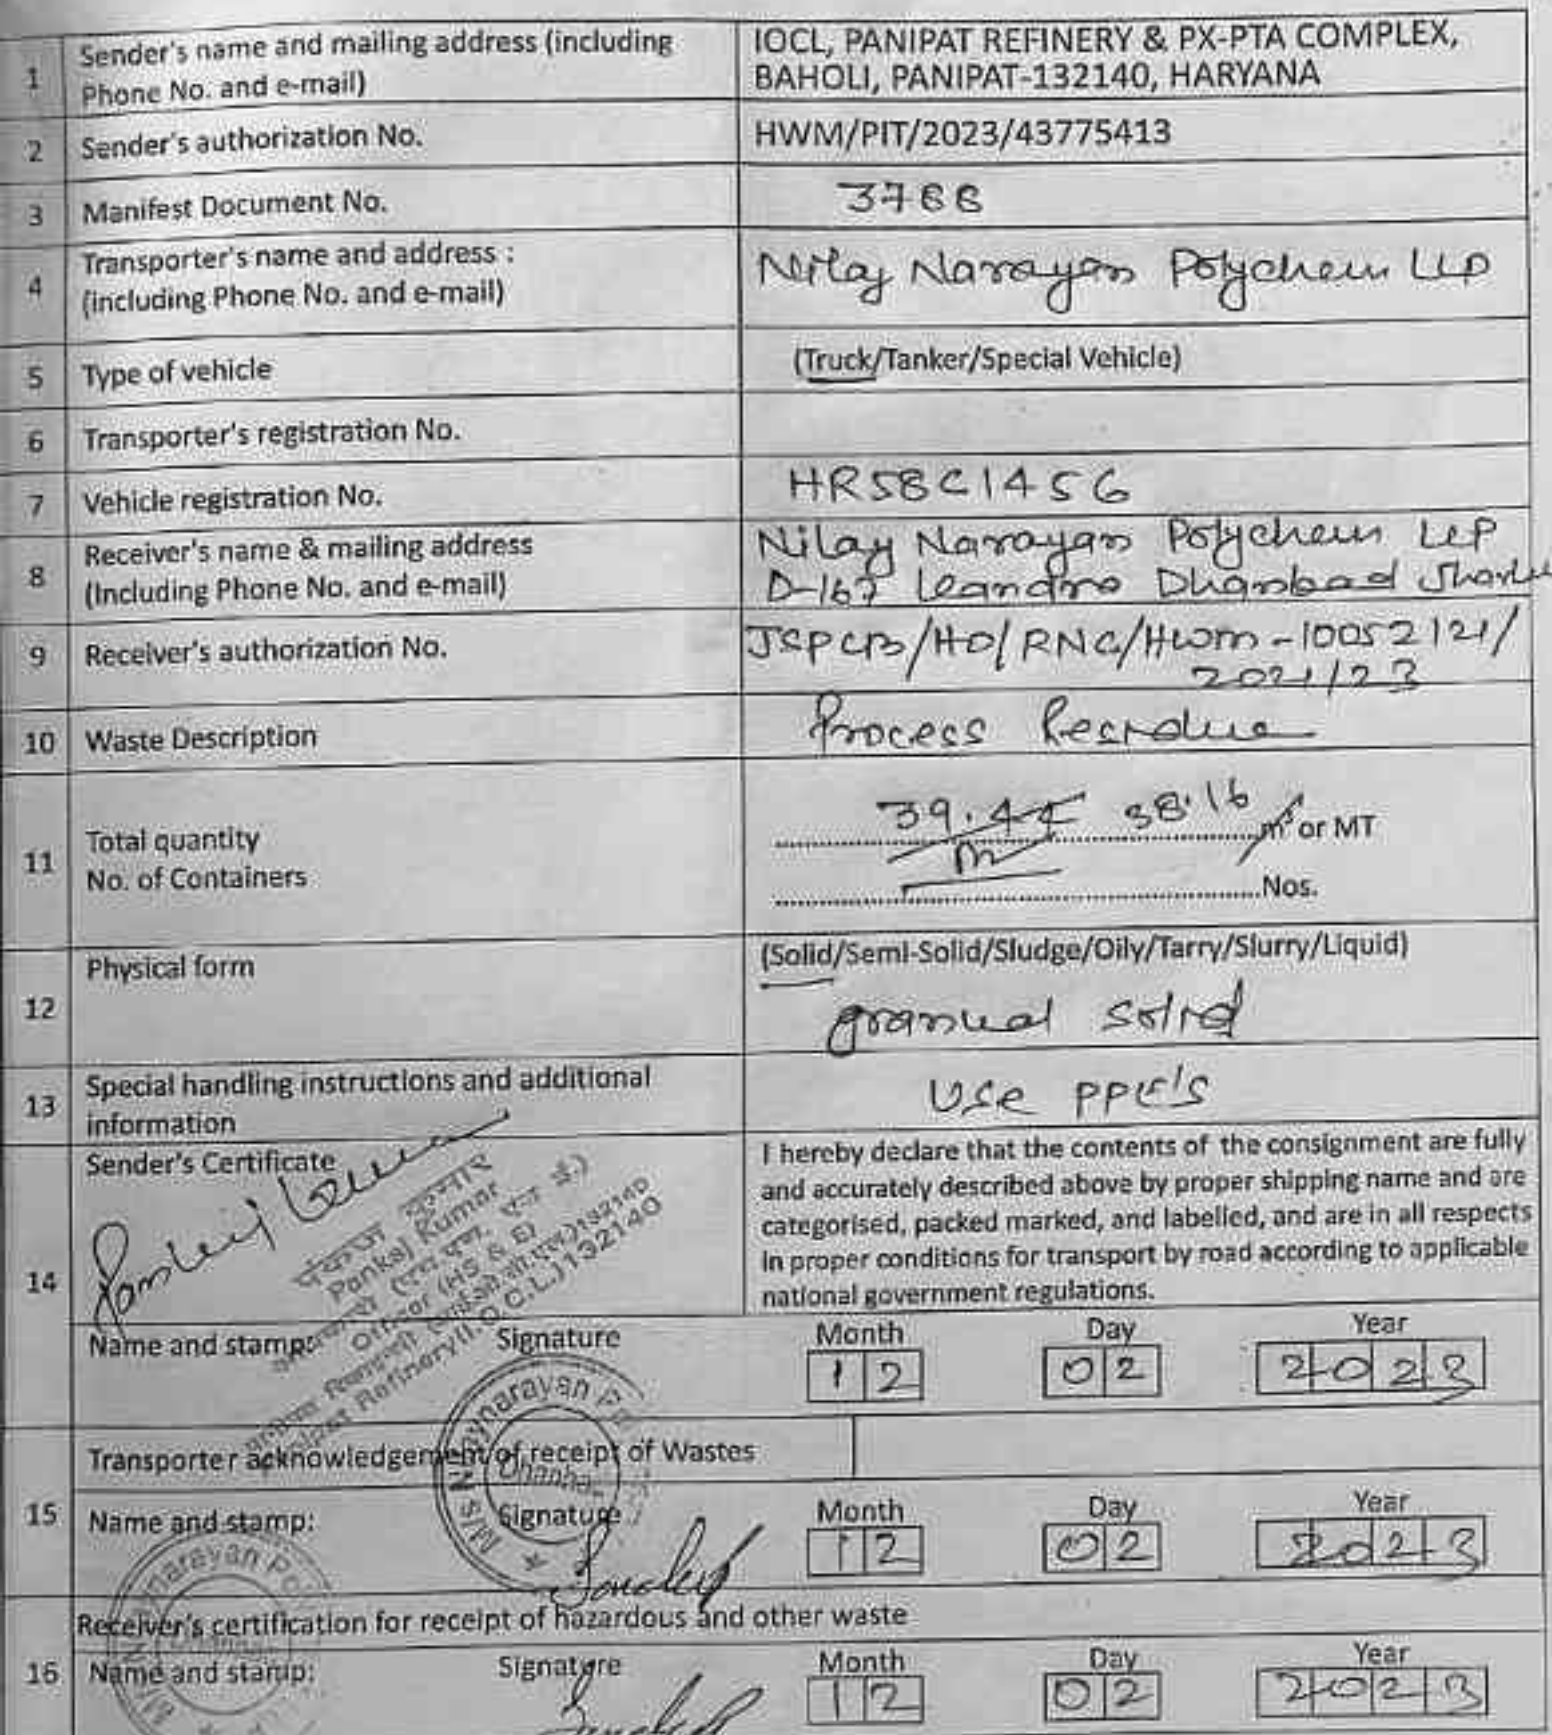 1 Sender's name and mailing address (including
Phone No. and e-mail)
IOCL, PANIPAT REFINERY & PX-PTA COMPLEX,
BAHOLI, PANIPAT-132140, HARYANA
2 Sender's authorization No.
HWM/PIT/2023/43775413
3 Manifest Document No.
3766
4 Transporter's name and address :
(including Phone No. and e-mail)
Nilay Narayan Polychem LLP
5 Type of vehicle
(Truck/Tanker/Special Vehicle)
6 Transporter's registration No.
7 Vehicle registration No.
HR58C1456
8 Receiver's name & mailing address
(Including Phone No. and e-mail)
Nilay Narayan Polychem LLP
D-167 Dhanbad
9 Receiver's authorization No.
JSPCB/HO/RNC/HWM-10052121/
2021/23
10 Waste Description
Process Residue
11 Total quantity
No. of Containers
39.44 38.16 m³ or MT
Nos.
12 Physical form
(Solid/Semi-Solid/Sludge/Oily/Tarry/Slurry/Liquid)
granual solid
13 Special handling instructions and additional
information
Use PPE's
14 Sender's Certificate
I hereby declare that the contents of the consignment are fully
and accurately described above by proper shipping name and are
categorised, packed marked, and labelled, and are in all respects
in proper conditions for transport by road according to applicable
national government regulations.
पंकज कुमार
Pankaj Kumar
Officer (HS & E)
Refinery (I.O.C.L.) 132140
Name and stamp: Signature Month Day Year
12 02 2023
15 Transporter acknowledgement of receipt of Wastes
Name and stamp: Signature Month Day Year
Sandeep 12 02 2023
16 Receiver's certification for receipt of hazardous and other waste
Name and stamp: Signature Month Day Year
Sandeep 12 02 2023